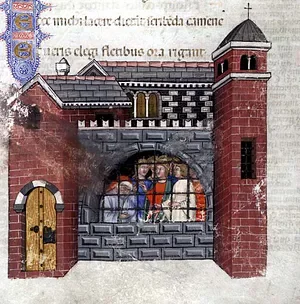 michi lacere dictant scribenda camene
elegi fletibus ora rigant